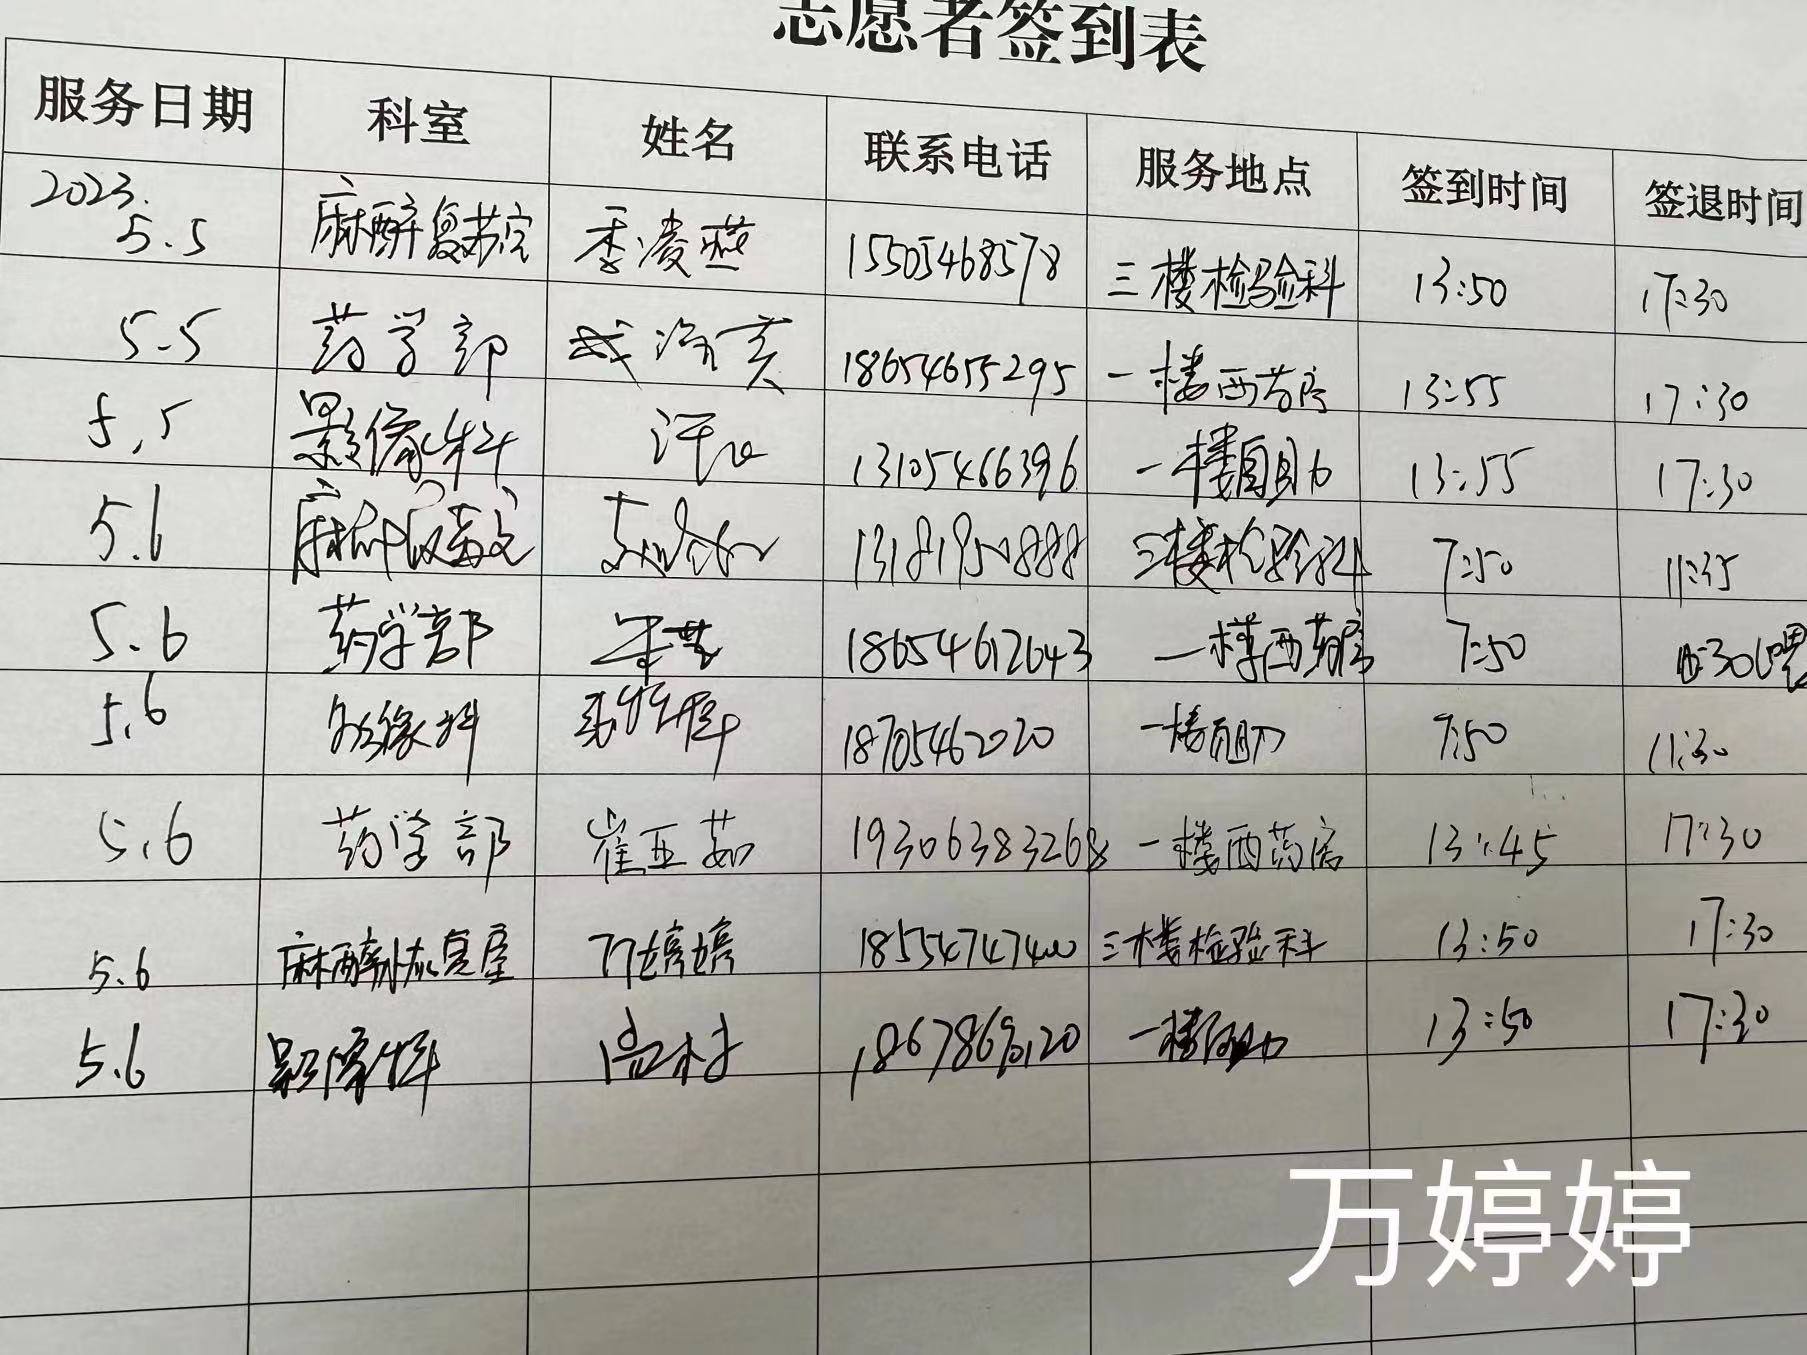 志愿者签到表
服务日期 科室 姓名 联系电话 服务地点 签到时间 签退时间
2023.
5.5 麻醉复苏室 季凌燕 15505468578 三楼检验科 13:50 17:30
5.5 药学部 18654655295 一楼西药房 13:55 17:30
5.5 影像科 13105466396 一楼自助 13:55 17:30
5.6 三楼检验科 7:50 11:35
5.6 药学部 18654612643 一楼西药房 7:50
5.6 18705462020 一楼自助 7:50 11:30
5.6 药学部 崔亚茹 19306383268 一楼西药房 13:45 17:30
5.6 麻醉恢复室 万婷婷 18554747400 三楼检验科 13:50 17:30
5.6 影像科 一楼自助 13:50 17:30
万婷婷